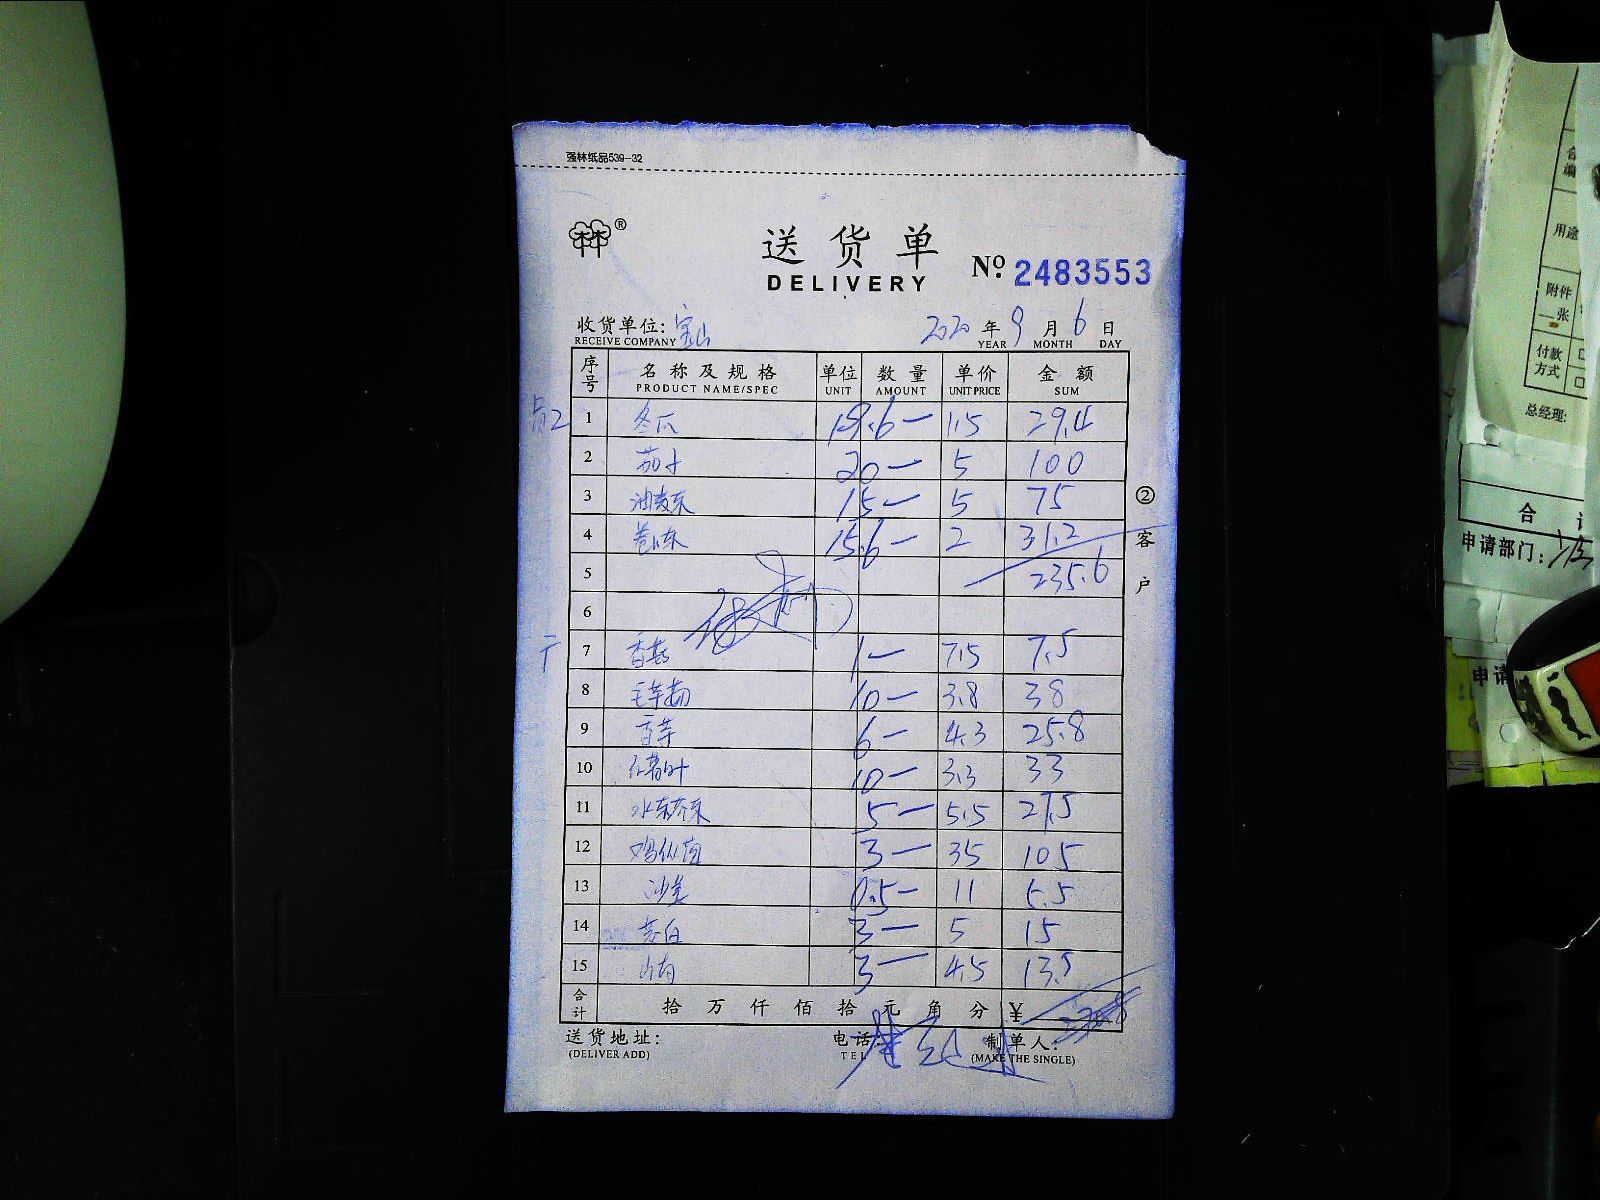 强林纸品539-32
林林®
送货单
DELIVERY
No. 2483553
收货单位: 宝山 2020 年 9 月 6 日
RECEIVE COMPANY YEAR MONTH DAY
序号 名称及规格 单位 数量 单价 金额
PRODUCT NAME/SPEC UNIT AMOUNT UNIT PRICE SUM
1 冬瓜 19.6— 1.5 29.4
2 茄子 20— 5 100
3 油麦菜 15— 5 75
4 卷心菜 15.6— 2 31.2
5 235.6
6
7 香菇 1— 7.5 7.5
8 毛芋艿 10— 3.8 38
9 香芋 6— 4.3 25.8
10 红薯叶 10— 3.3 33
11 水东芥菜 5— 5.5 27.5
12 鸡枞菌 3— 35 105
13 沙姜 0.5— 11 5.5
14 3— 5 15
15 3— 4.5 13.5
合计 拾 万 仟 佰 拾 元 角 分 ¥
送货地址: 电话: 制单人:
(DELIVER ADD) TEL (MAKE THE SINGLE)
②客户
合
用途
附件
张
付款
方式
总经理:
合
申请部门:
申请